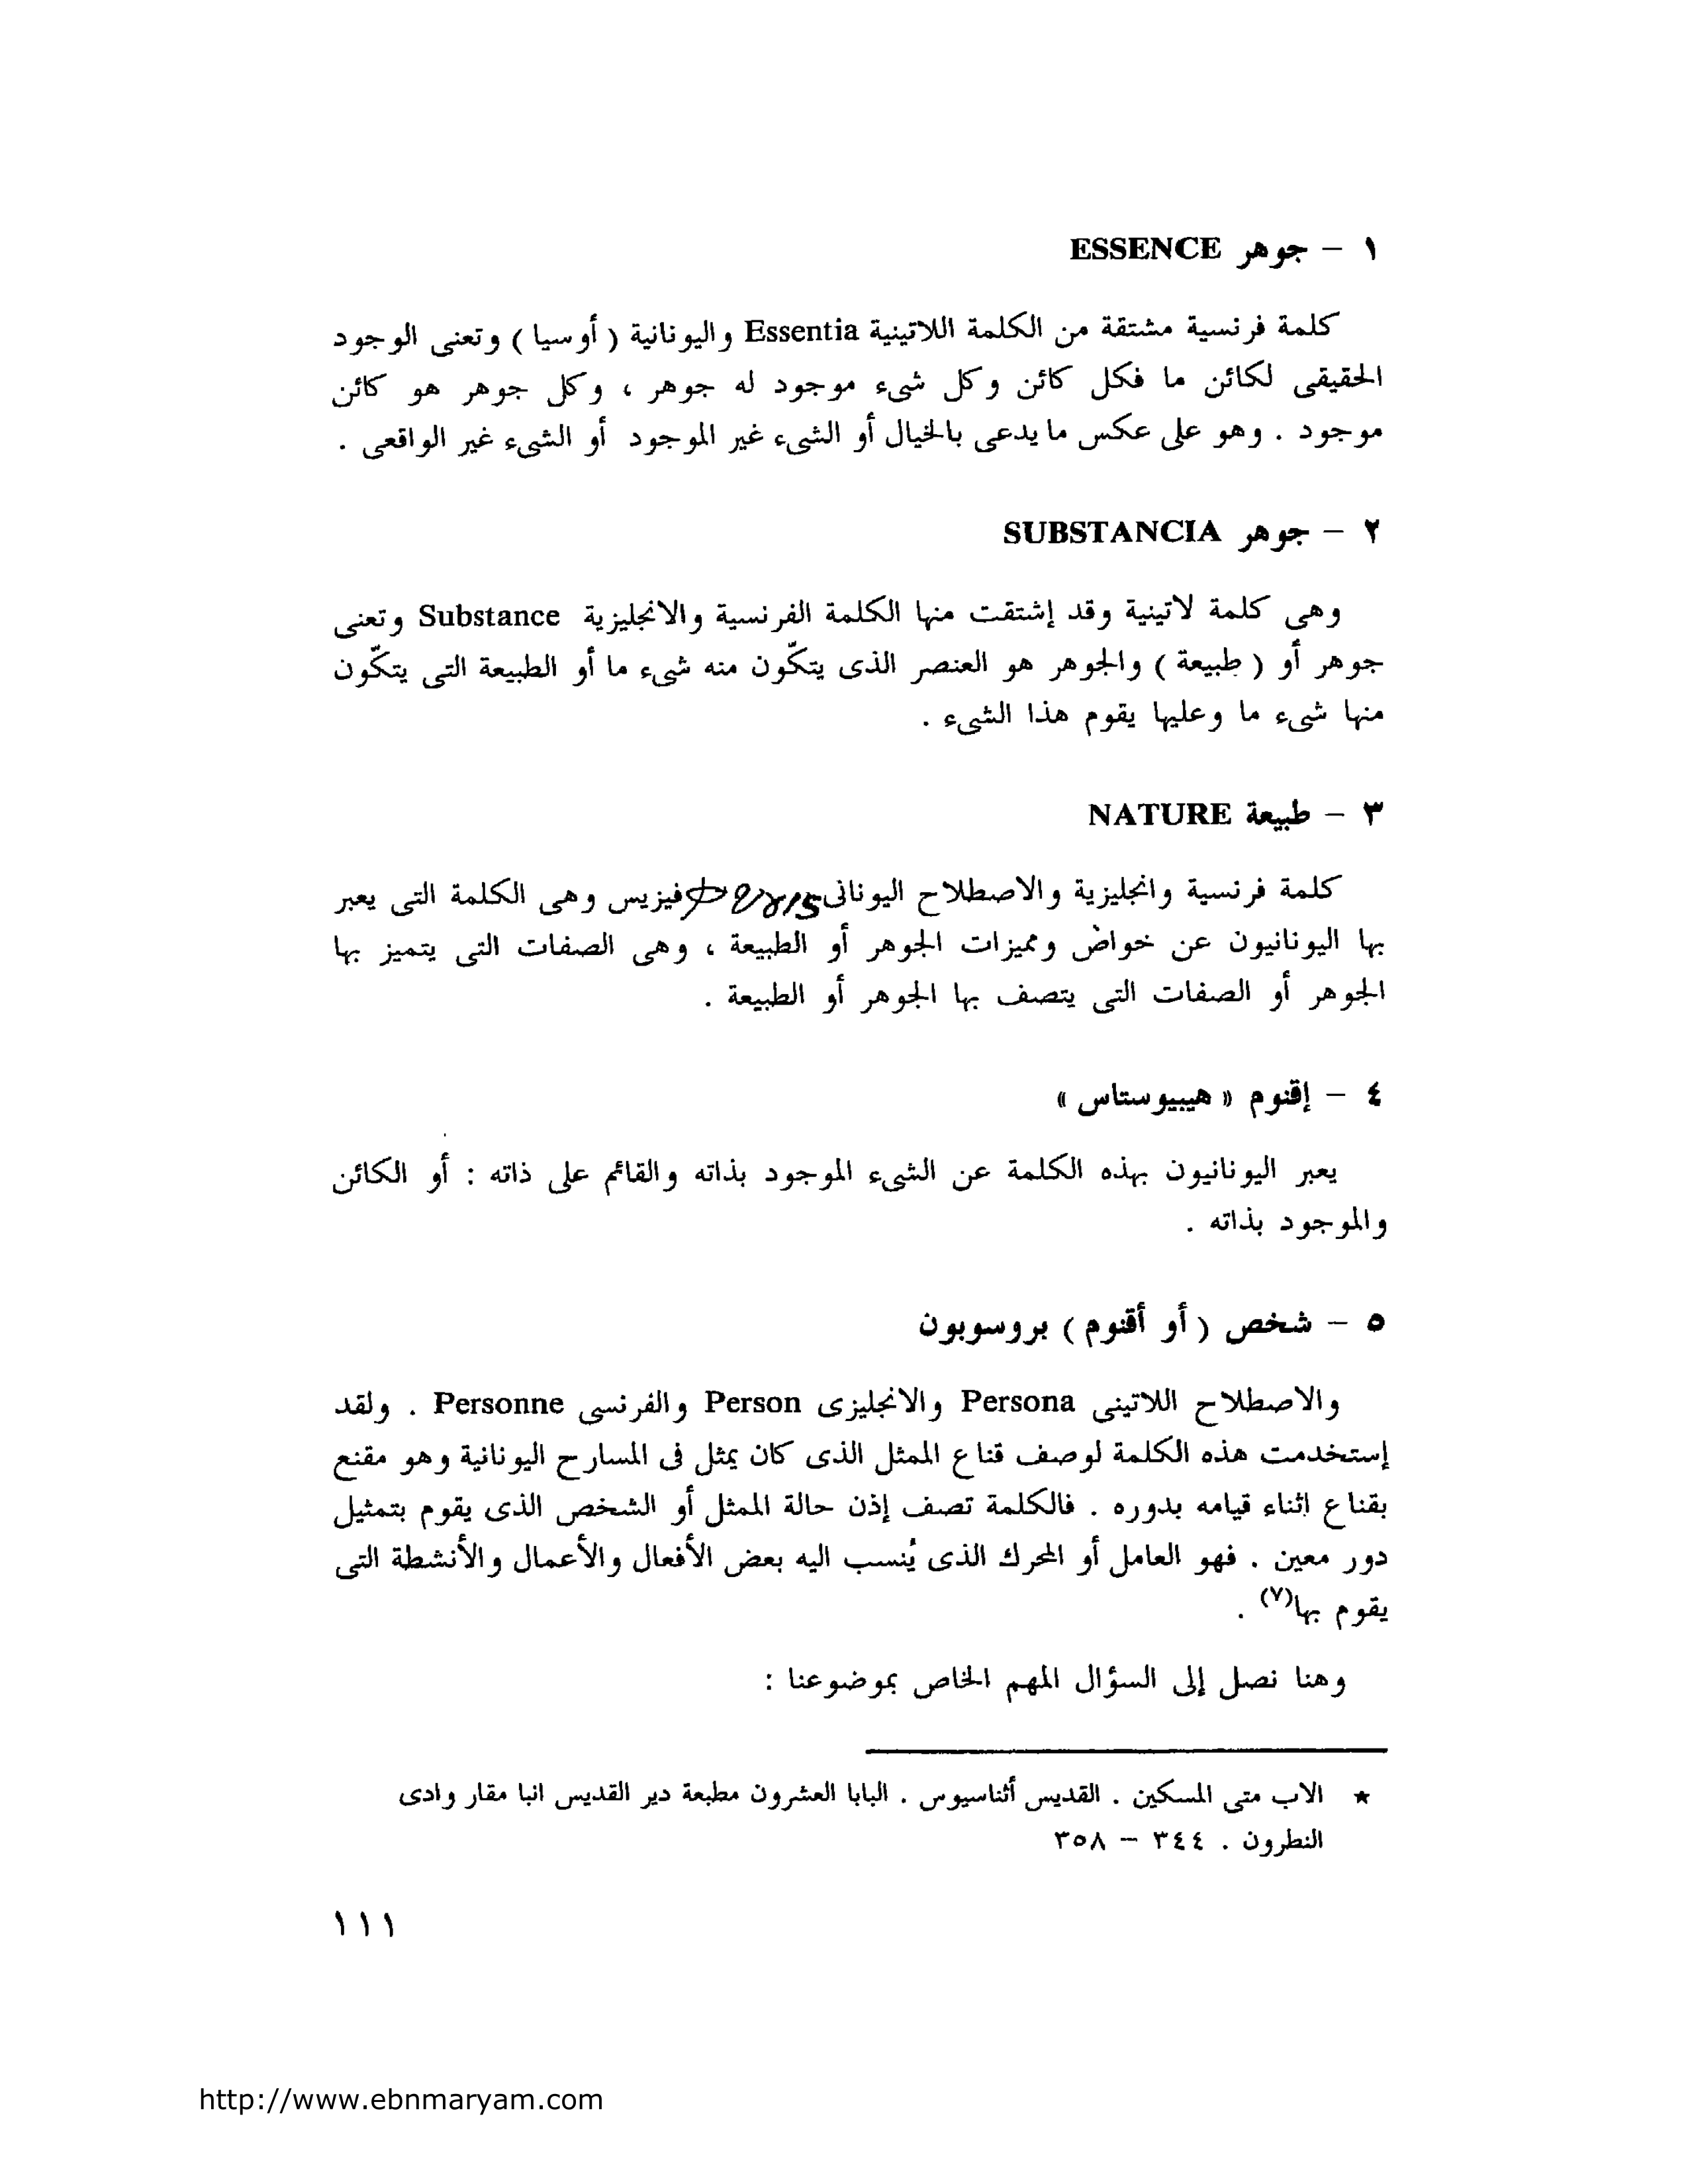 ١ – جوهر ESSENCE
كلمة فرنسية مشتقة من الكلمة اللاتينية Essentia واليونانية ( أوسيا ) وتعنى الوجود
الحقيقى لكائن ما فكل كائن وكل شىء موجود له جوهر ، وكل جوهر هو كائن
موجود . وهو على عكس ما يدعى بالخيال أو الشىء غير الموجود أو الشىء غير الواقعى .
٢ – جوهر SUBSTANCIA
وهى كلمة لاتينية وقد إشتقت منها الكلمة الفرنسية والانجليزية Substance وتعنى
جوهر أو ( طبيعة ) والجوهر هو العنصر الذى يتكّون منه شىء ما أو الطبيعة التى يتكّون
منها شىء ما وعليها يقوم هذا الشىء .
٣ – طبيعة NATURE
كلمة فرنسية وانجليزية والاصطلاح اليونانى فيزيس وهى الكلمة التى يعبر
بها اليونانيون عن خواص ومميزات الجوهر أو الطبيعة ، وهى الصفات التى يتميز بها
الجوهر أو الصفات التى يتصف بها الجوهر أو الطبيعة .
٤ – إقنوم « هيبيوستاس »
يعبر اليونانيون بهذه الكلمة عن الشىء الموجود بذاته والقائم على ذاته : أو الكائن
والموجود بذاته .
٥ – شخص ( أو أقنوم ) بروسوبون
والاصطلاح اللاتينى Persona والانجليزى Person والفرنسى Personne . ولقد
إستخدمت هذه الكلمة لوصف قناع الممثل الذى كان يمثل فى المسارح اليونانية وهو مقنع
بقناع اثناء قيامه بدوره . فالكلمة تصف إذن حالة الممثل أو الشخص الذى يقوم بتمثيل
دور معين . فهو العامل أو المحرك الذى يُنسب اليه بعض الأفعال والأعمال والأنشطة التى
يقوم بها(٧) .
وهنا نصل إلى السؤال المهم الخاص بموضوعنا :
★ الاب متى المسكين . القديس أثناسيوس . البابا العشرون مطبعة دير القديس انبا مقار وادى
النطرون . ٣٤٤ – ٣٥٨
١١١
http://www.ebnmaryam.com